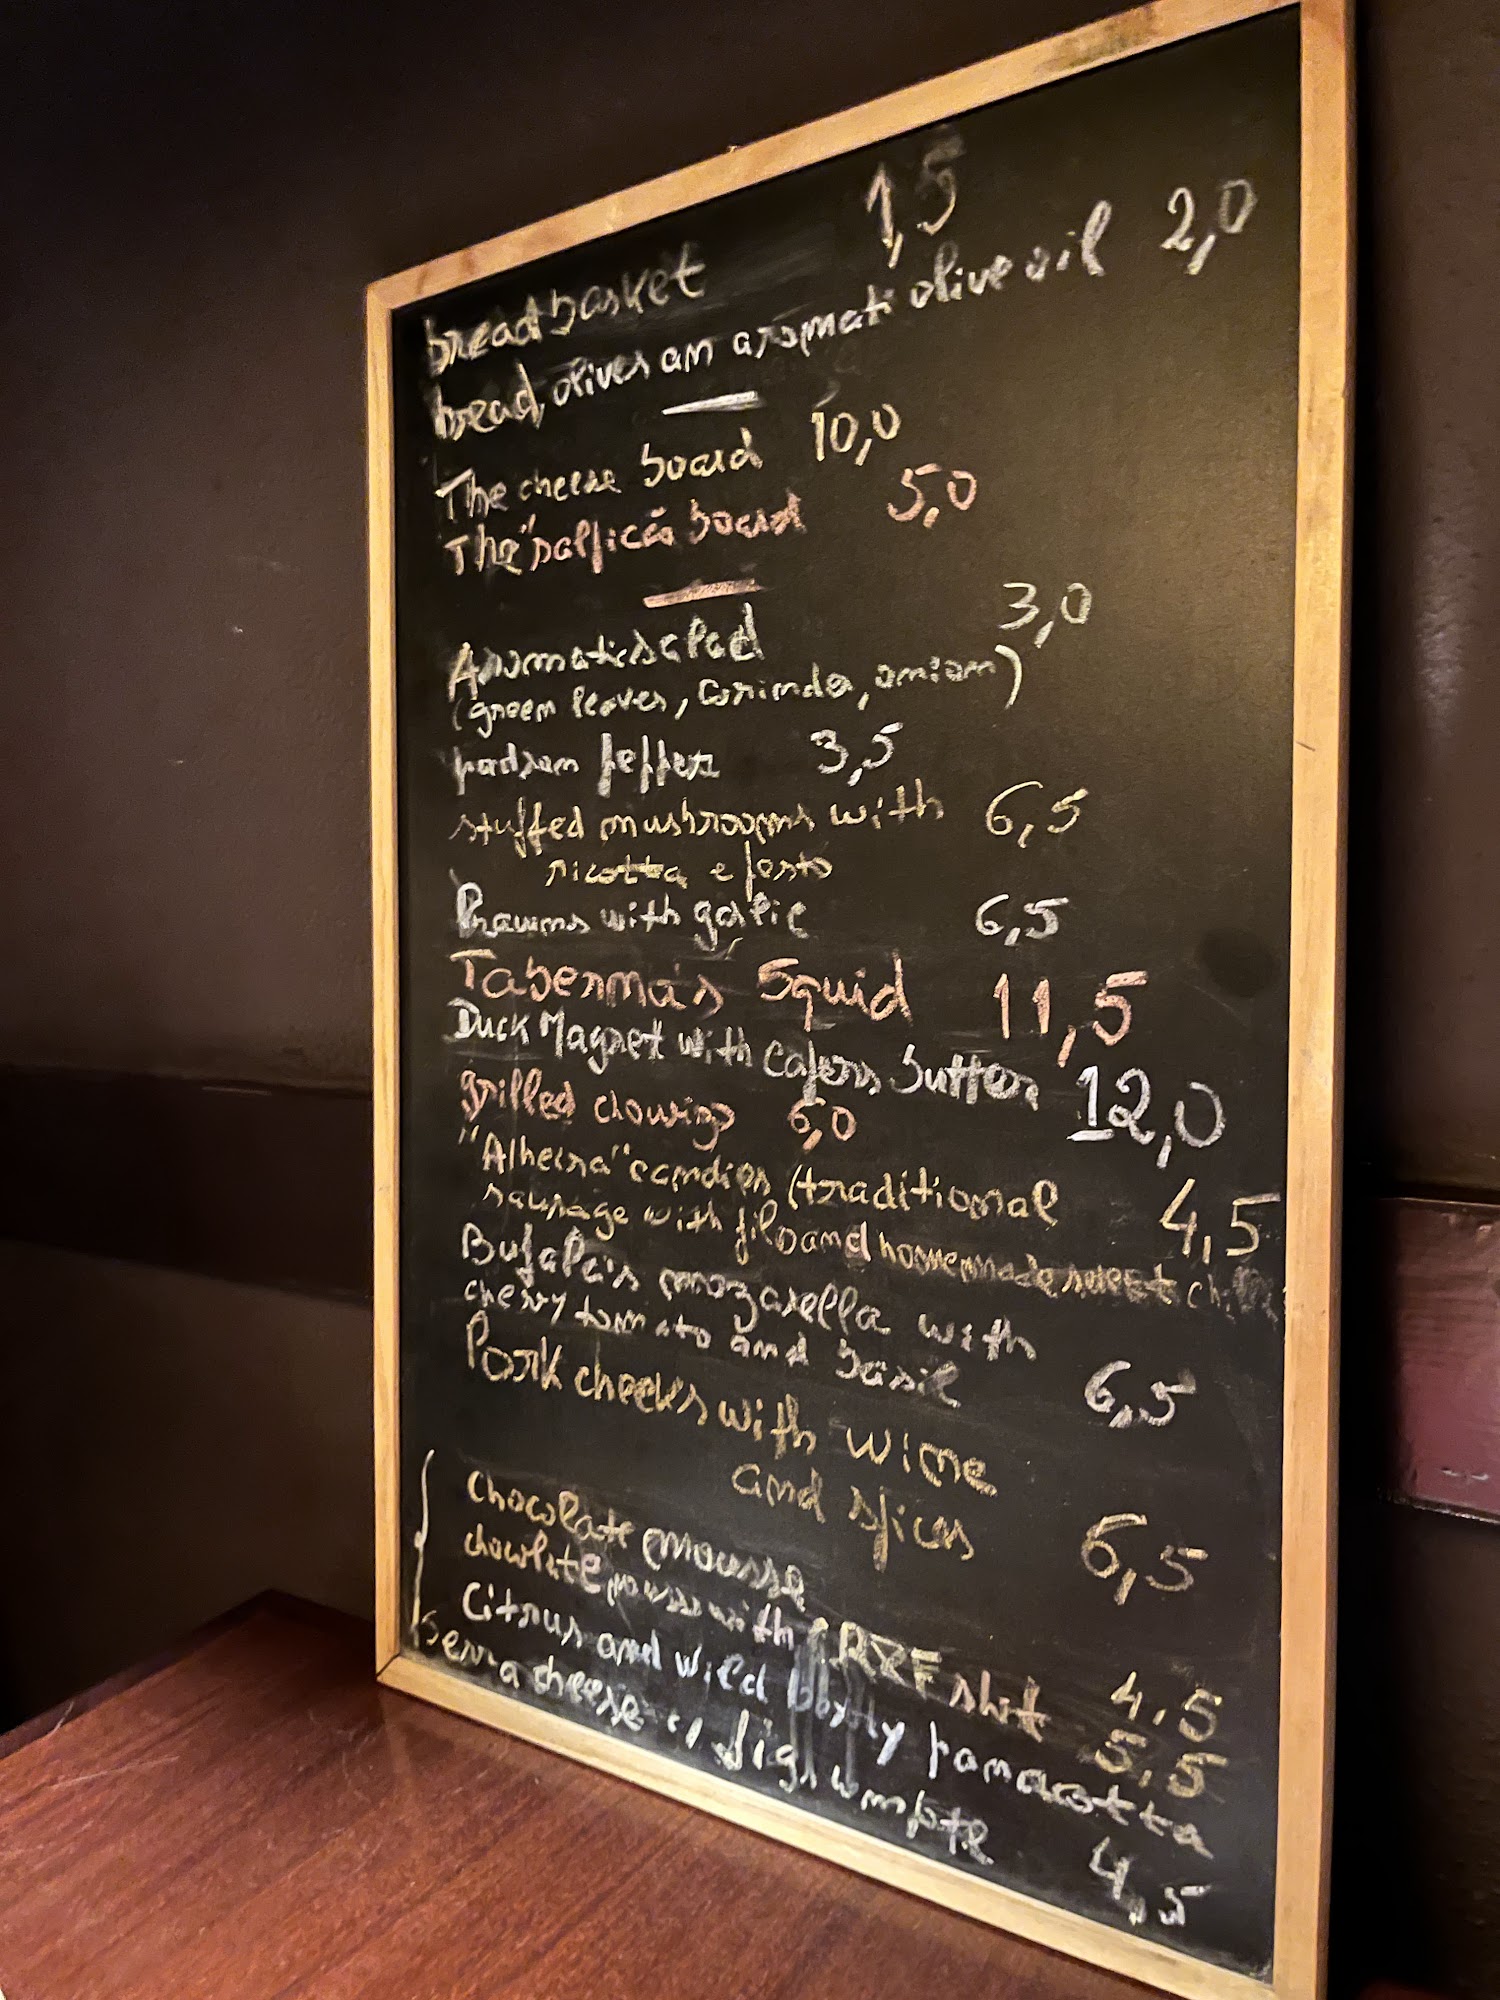 bread basket 1,5
bread, olives an aromati olive oil 2,0
The cheese board 10,0
The "salpicão board 5,0
Aromatic salad 3,0
(green leaves, corinda, onion)
padron pepper 3,5
stuffed mushrooms with 6,5
ricotta e pesto
Prawns with garlic 6,5
Taberna's Squid 11,5
Duck Magret with capers butter 12,0
grilled chouriço 6,0
"Alheira" candies (traditional 4,5
sausage with filo and homemade sweet
Bufala's mozarella with
cherry tomato and basil 6,5
Pork cheeks with wine
and spices 6,5
Chocolate mousse 4,5
chocolate mousse with shot 5,5
Citrus and wild panacotta
Serra cheese fig 4,5